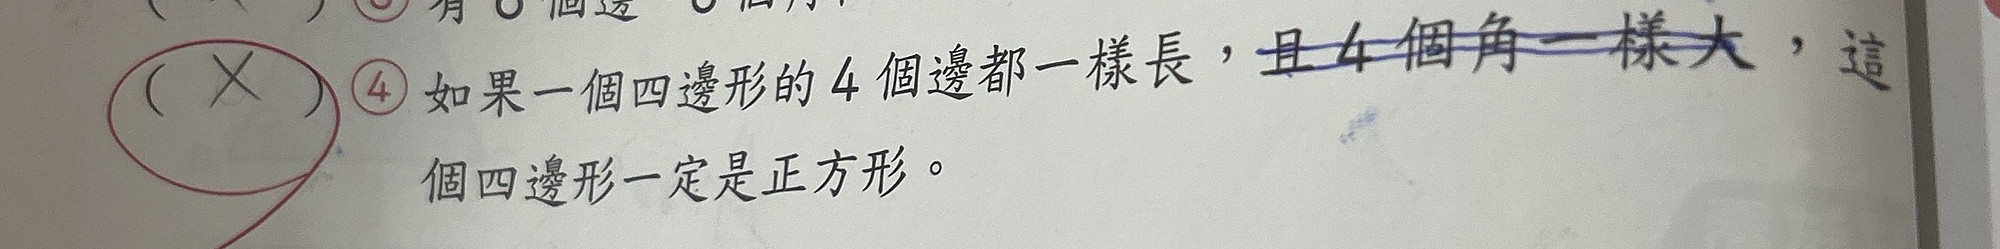 ( ) ③ 有6個邊
( X ) ④ 如果一個四邊形的4個邊都一樣長，且4個角一樣大，這
個四邊形一定是正方形。